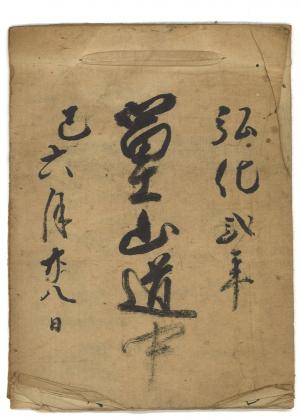 弘化弐年
冨士山道中
巳六月廿八日